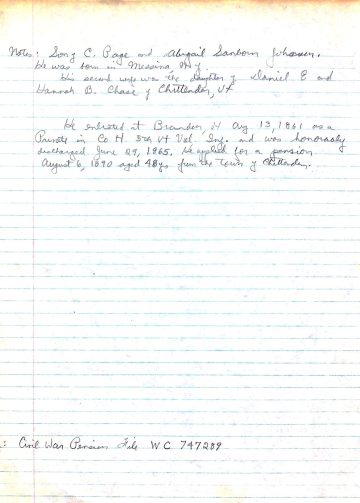 Notes: Son of C. Page and Abigail Sanborn Johnson.
He was born in Messina, N.Y.
His second wife was the daughter of Daniel E and
Hannah B. Chase of Chittenden, Vt
He enlisted at Brandon, Vt Aug 13, 1861 as a
Private in Co H 5th Vt Vol. Inf. and was honorably
discharged June 29, 1865. He applied for a pension
August 6, 1890 aged 48 yrs from the Town of Chittenden.
: Civil War Pension File WC 747289